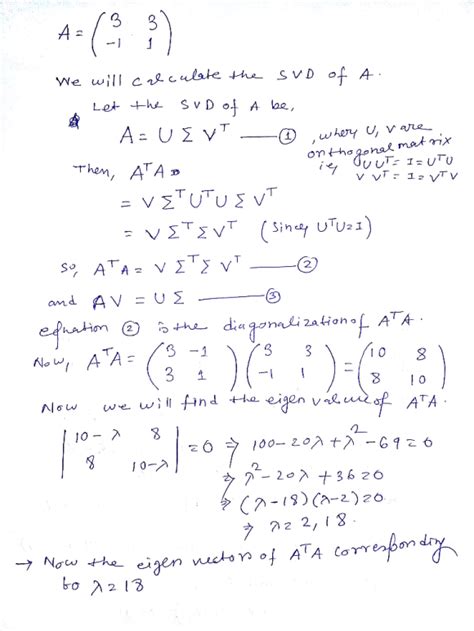 A = ( 3 3 
-1 1 )
We will calculate the SVD of A.
Let the SVD of A be,
A = U Σ V^T —— ①
, where U, V are
orthogonal matrix
ie, UU^T = I = U^TU
VV^T = I = V^TV
Then, A^TA =
= V Σ^T U^T U Σ V^T
= V Σ^T Σ V^T (Since U^TU = I)
So, A^TA = V Σ^T Σ V^T —— ②
and AV = U Σ —— ③
equation ② is the diagonalization of A^TA.
Now, A^TA = ( 3 -1 ) ( 3 3 ) = ( 10 8 )
( 3 1 ) ( -1 1 ) ( 8 10 )
Now we will find the eigen value of A^TA.
| 10-λ 8 | = 0 ⇒ 100 - 20λ + λ^2 - 69 = 0
| 8 10-λ |
⇒ λ^2 - 20λ + 36 = 0
⇒ (λ-18)(λ-2) = 0
⇒ λ = 2, 18.
→ Now the eigen vectors of A^TA corresponding
to λ = 18